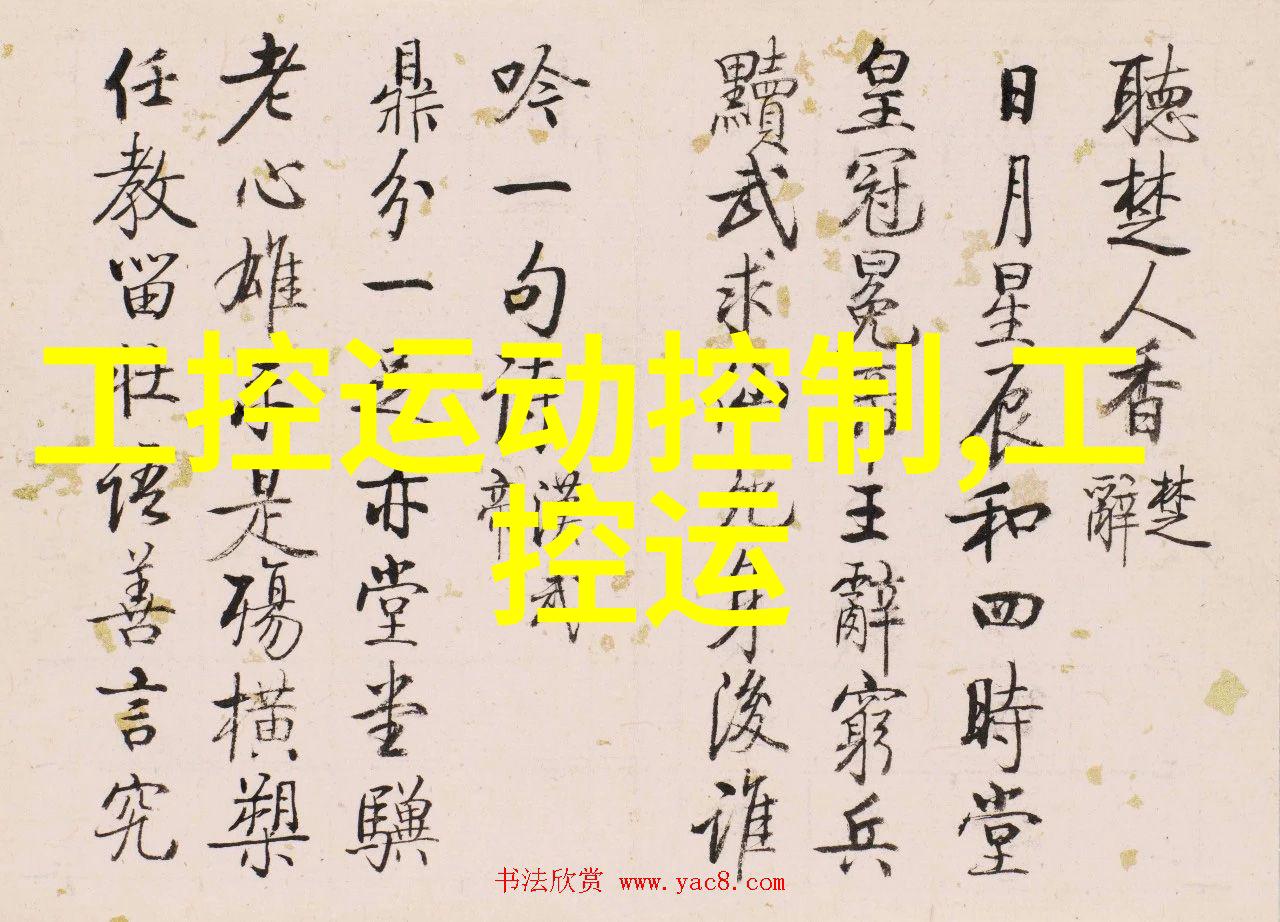 工控运动控制,工
控运
聽楚人香 楚辭
日月星辰和四時堂
皇冠冕帝王辭窮兵
黷武求仙死身後誰
吟一句詩 漢武
鼎分一足亦堂堂驥
老心雄未是殤橫槊
任教留壯語善言究
书法欣赏 www.yac8.com